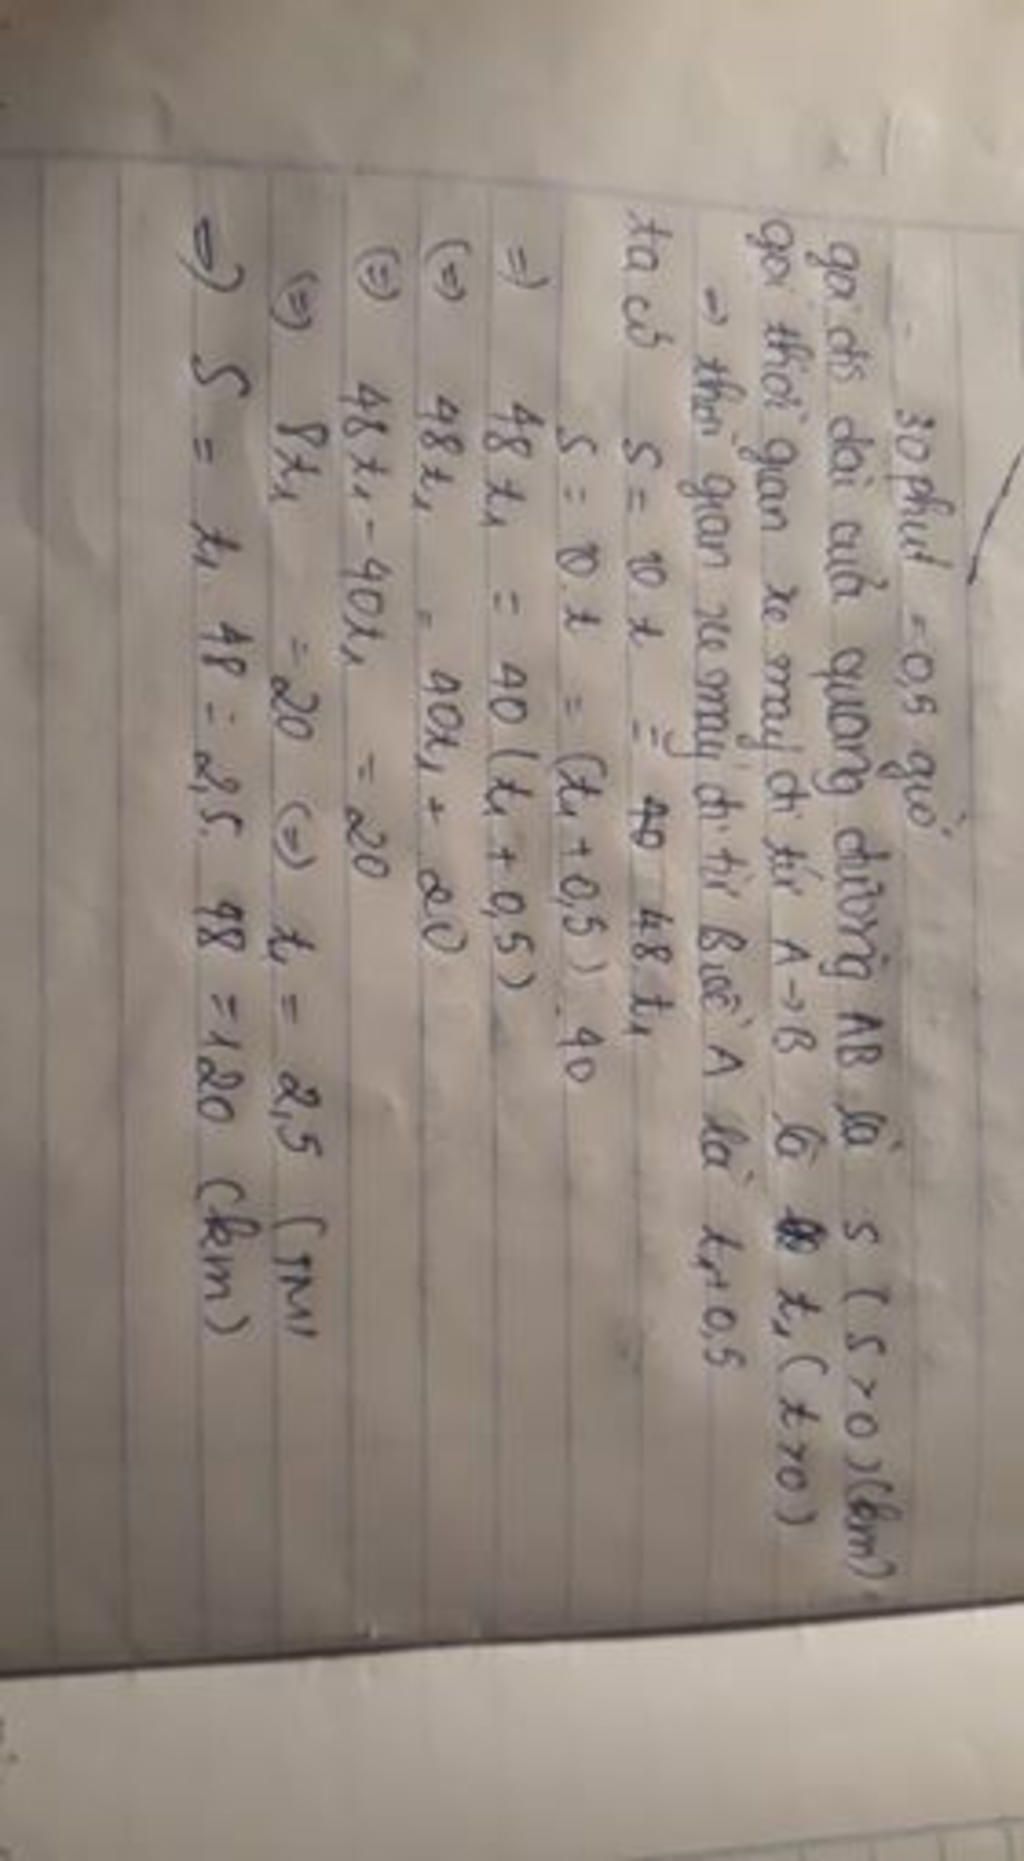 30 phút = 0,5 giờ
gọi độ dài của quãng đường AB là S (S > 0) (km)
gọi thời gian xe máy đi từ A → B là t₁ (t > 0)
→ thời gian xe máy đi từ B về A là t₁+0,5
ta có S = v t = 48 t₁
S = v t = (t₁ + 0,5) . 40
=> 48 t₁ = 40 (t₁ + 0,5)
(=) 48 t₁ = 40t₁ + 20
(=) 48 t₁ - 40t₁ = 20
(=) 8t₁ = 20 (=) t₁ = 2,5 (TM)
=> S = t₁ 48 = 2,5. 48 = 120 (km)